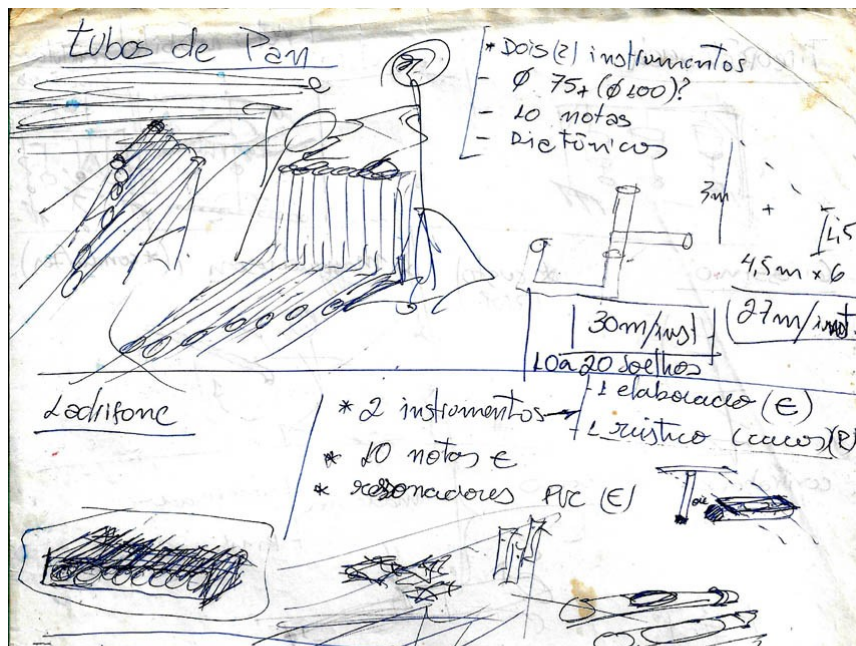 tubos de Pan
* Dois (2) instrumentos
- Ø 75, (Ø 100)?
- 10 notas
- Diatônicos
3m
+
1,5
4,5m x 6
27m/inst.
30m/inst
10 a 20 Joelhos
Ladrifone
* 2 instrumentos
- 1 elaborado (E)
- 1 rústico (cacos) (R)
* 10 notas e
* ressonadores PVC (E)
ou